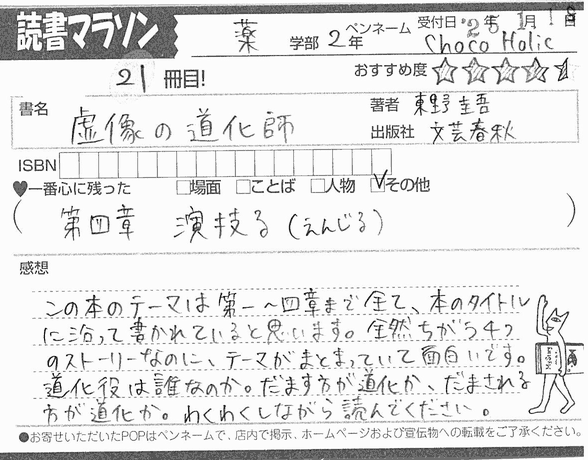 読書マラソン
薬 学部 2年 ペンネーム Choco Holic
受付日 '25年 1月
21 冊目!
おすすめ度
書名 虚像の道化師
著者 東野圭吾
出版社 文芸春秋
ISBN
♥一番心に残った □場面 □ことば □人物 ☑その他
(第四章 演技る(えんじる))
感想
この本のテーマは第一~四章まで全て、本のタイトル
に沿って書かれていると思います。全然ちがう4つ
のストーリーなのに、テーマがまとまっていて面白いです。
道化役は誰なのか。だます方が道化か、だまされる
方が道化か。わくわくしながら読んでください。
●お寄せいただいたPOPはペンネームで、店内で掲示、ホームページおよび宣伝物への転載をご了承ください。